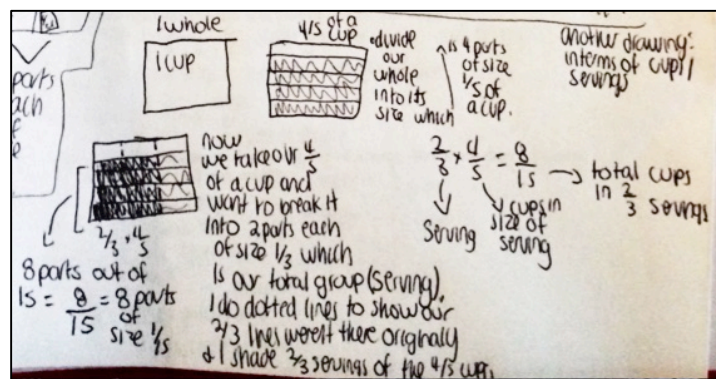 parts
ach
f
e
1 whole
1 cup
4/5 of a cup
• divide
our
whole
into 1/5
size which
is 4 parts
of size
1/5 of
a cup.
another drawing:
in terms of cups/
servings
2/3 × 4/5
8 parts out of
15 = 8/15 = 8 parts
of
size 1/15
now
we take our 4/5
of a cup and
want to break it
into 2 parts each
of size 1/3 which
is our total group (serving).
I do dotted lines to show our
2/3 lines weren't there originally
& I shade 2/3 servings of the 4/5 cups.
2/3 × 4/5 = 8/15 → total cups
in 2/3 servings
serving
cups in
size of
serving